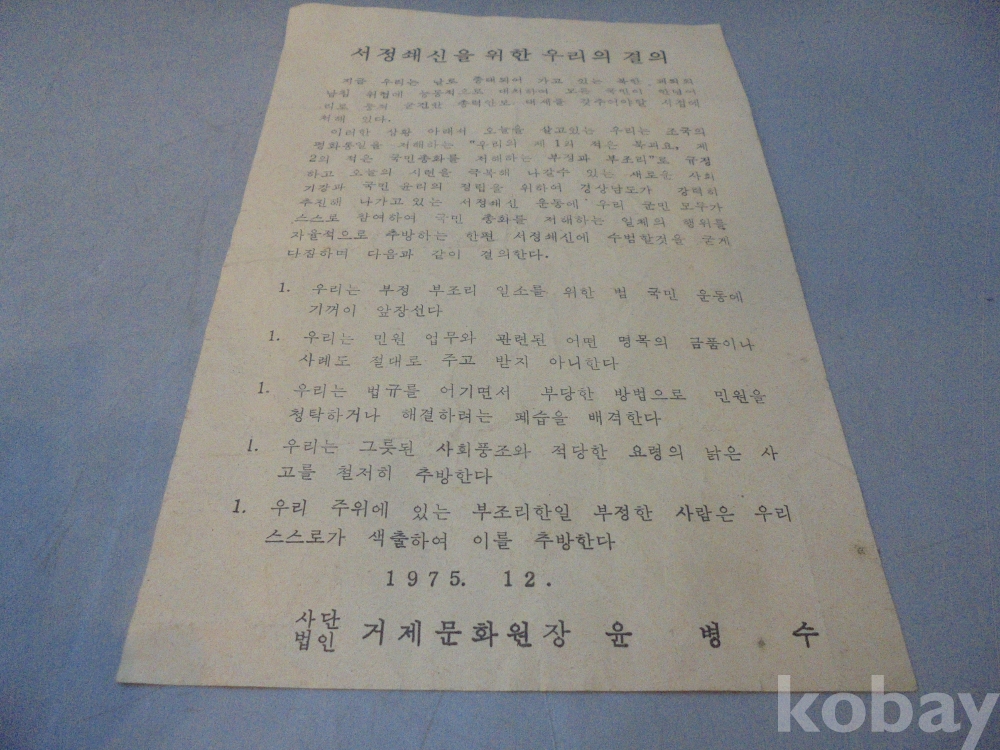 서정쇄신을 위한 우리의 결의
지금 우리는 날로 증대되어 가고 있는 북한 괴뢰의
남침 위협에 능동적으로 대처하여 모든 국민이 한덩어
리로 뭉쳐 굳건한 총력안보 태세를 갖추어야할 시점에
처해 있다.
이러한 상황 아래서 오늘을 살고있는 우리는 조국의
평화통일을 저해하는 "우리의 제 1의 적은 북괴요, 제
2의 적은 국민총화를 저해하는 부정과 부조리"로 규정
하고 오늘의 시련을 극복해 나갈수 있는 새로운 사회
기강과 국민 윤리의 정립을 위하여 경상남도가 강력히
추진해 나가고 있는 서정쇄신 운동에 우리 군민 모두가
스스로 참여하여 국민 총화를 저해하는 일체의 행위를
자율적으로 추방하는 한편 서정쇄신에 수범할것을 굳게
다짐하며 다음과 같이 결의한다.
1. 우리는 부정 부조리 일소를 위한 범 국민 운동에
기꺼이 앞장선다
1. 우리는 민원 업무와 관련된 어떤 명목의 금품이나
사례도 절대로 주고 받지 아니한다
1. 우리는 법규를 어기면서 부당한 방법으로 민원을
청탁하거나 해결하려는 폐습을 배격한다
1. 우리는 그릇된 사회풍조와 적당한 요령의 낡은 사
고를 철저히 추방한다
1. 우리 주위에 있는 부조리한일 부정한 사람은 우리
스스로가 색출하여 이를 추방한다
1975. 12.
사단법인 거제문화원장 윤 병 수
kobay